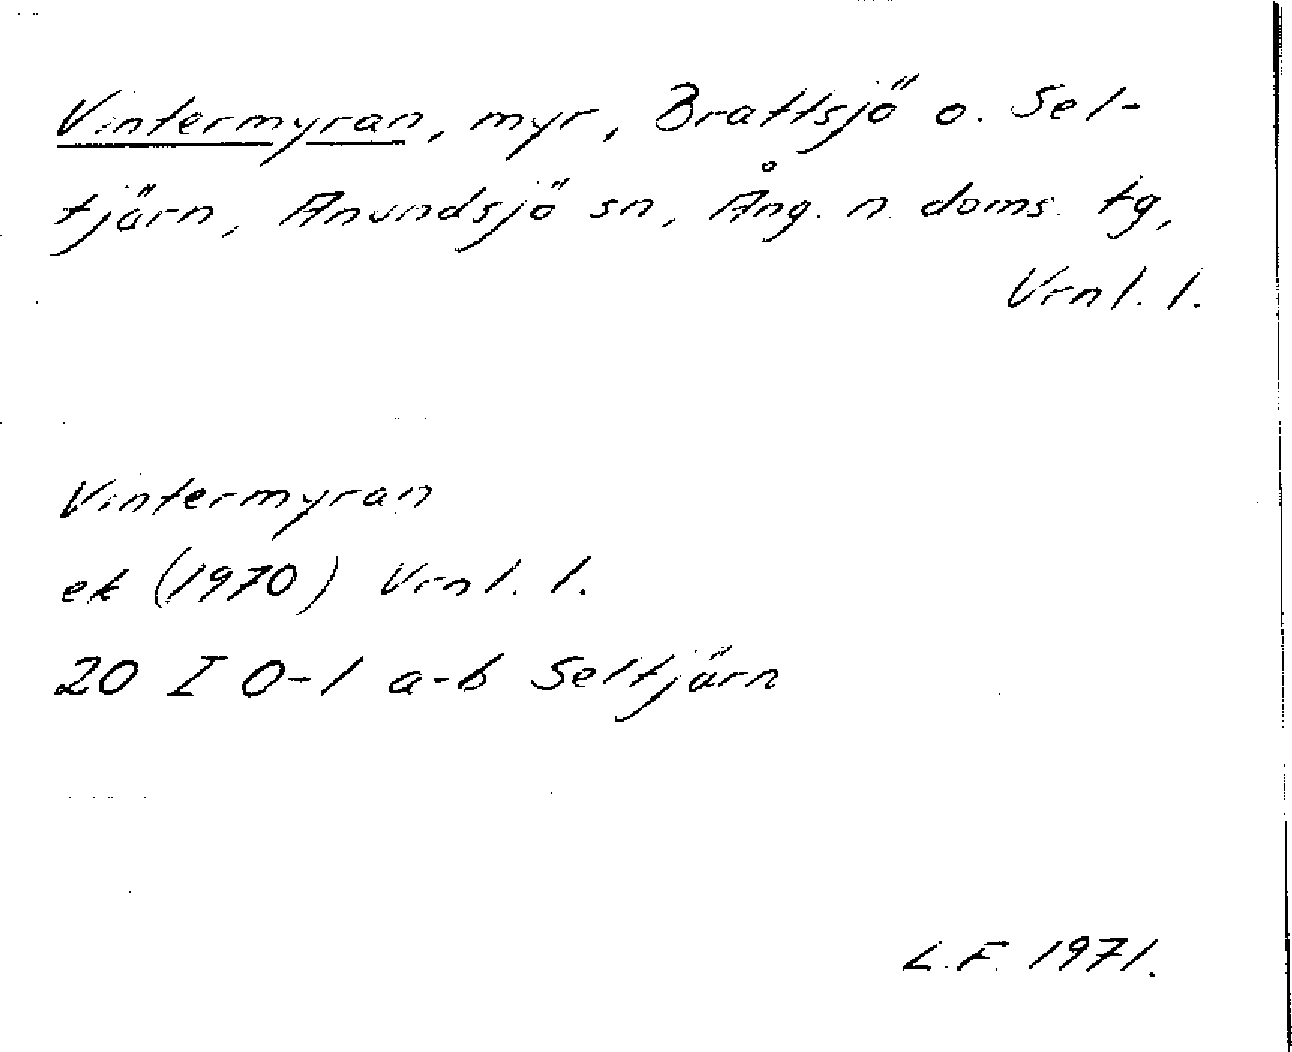 Vintermyran, myr, Brattsjö o. Sel-
tjärn, Anundsjö sn, Ång. n. doms. tg,
Vrnl. l.
Vintermyran
ek (1970) Vrnl. l.
20 I 0-1 a-b Seltjärn
L.F. 1971.